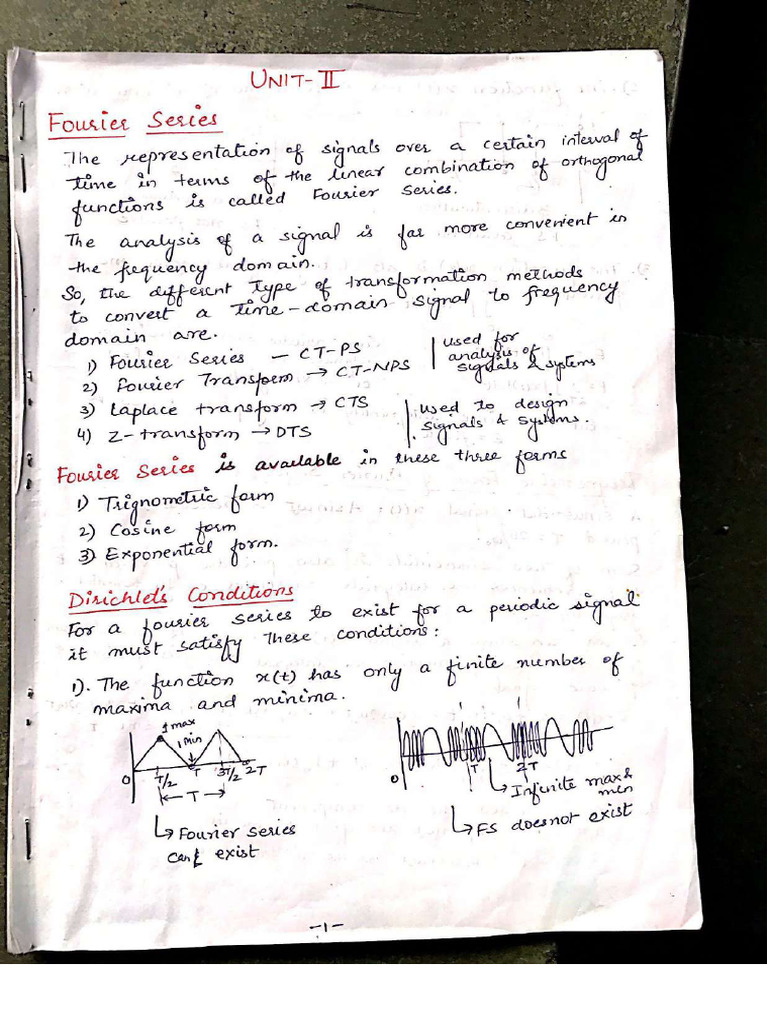 UNIT-II
Fourier Series
The representation of signals over a certain interval of
time in terms of the linear combination of orthogonal
functions is called Fourier series.
The analysis of a signal is far more convenient in
the frequency domain.
So, the different type of transformation methods
to convert a time-domain signal to frequency
domain are.
1) Fourier Series — CT-PS
2) Fourier Transform → CT-NPS
used for
analysis of
signals & systems
3) Laplace transform → CTS
4) Z-transform → DTS
used to design
signals & systems.
Fourier Series is available in these three forms
1) Trignometric form
2) Cosine form
3) Exponential form.
Dirichlet's Conditions
For a fourier series to exist for a periodic signal
it must satisfy these conditions:
1). The function x(t) has only a finite number of
maxima and minima.
1 max
1 min
0 T/2 T 3T/2 2T
← T →
↳ Fourier series
exist
0 T 2T
↳ Infinite max &
min
↳ FS doesnot exist
-1-